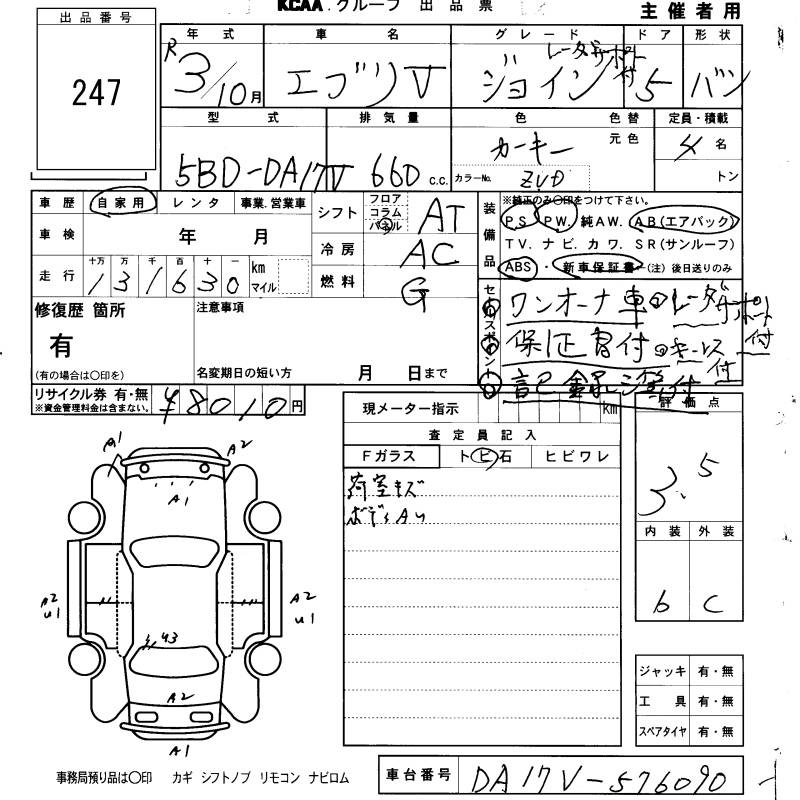 KCAA.グループ 出品票
主催者用
出品番号
247
年式
R3/10月
車名
エブリV
グレード
ジョイン レーダーサポート付
ドア
5
形状
バン
型式
5BD-DA17V
排気量
660 c.c.
色
カーキー
色替
元色
カラーNo.
ZVD
定員・積載
4名
トン
車歴 自家用 レンタ 事業.営業車
車検 年 月
走行 十万 万 千 百 十 一
131630 km
マイル
シフト フロア コラム パネル AT
冷房 AC
燃料 G
装備品
※純正のみ〇印をつけて下さい。
P.S P.W. 純AW. A.B(エアバック)
T.V. ナビ. カワ. S.R(サンルーフ)
ABS・新車保証書(注)後日送りのみ
セールスポイント
ワンオーナ車 レーダーサポート付
保証書付 キーレス付
記録簿付
修復歴 箇所
有
(有の場合は〇印を)
注意事項
名変期日の短い方 月 日まで
リサイクル券 有・無
※資金管理料金は含まない。
¥8010円
現メーター指示 km
査定員記入
Fガラス トビ石 ヒビワレ
荷室キズ
ボディAU
評価点
3.5
内装 外装
b C
A1 A2
A1
A2 U1
A2 U1
U3
A2
A1
ジャッキ 有・無
工具 有・無
スペアタイヤ 有・無
事務局預り品は〇印 カギ シフトノブ リモコン ナビロム
車台番号 DA17V-576090